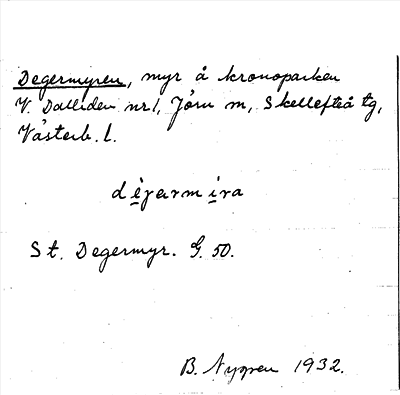 Degermyren, myr å kronoparken
V. Dalliden nr 1, Jörn m, Skellefteå tg,
Västerb. l.
dèγarmira
St. Degermyr. G. 50.
B. Nygren 1932.